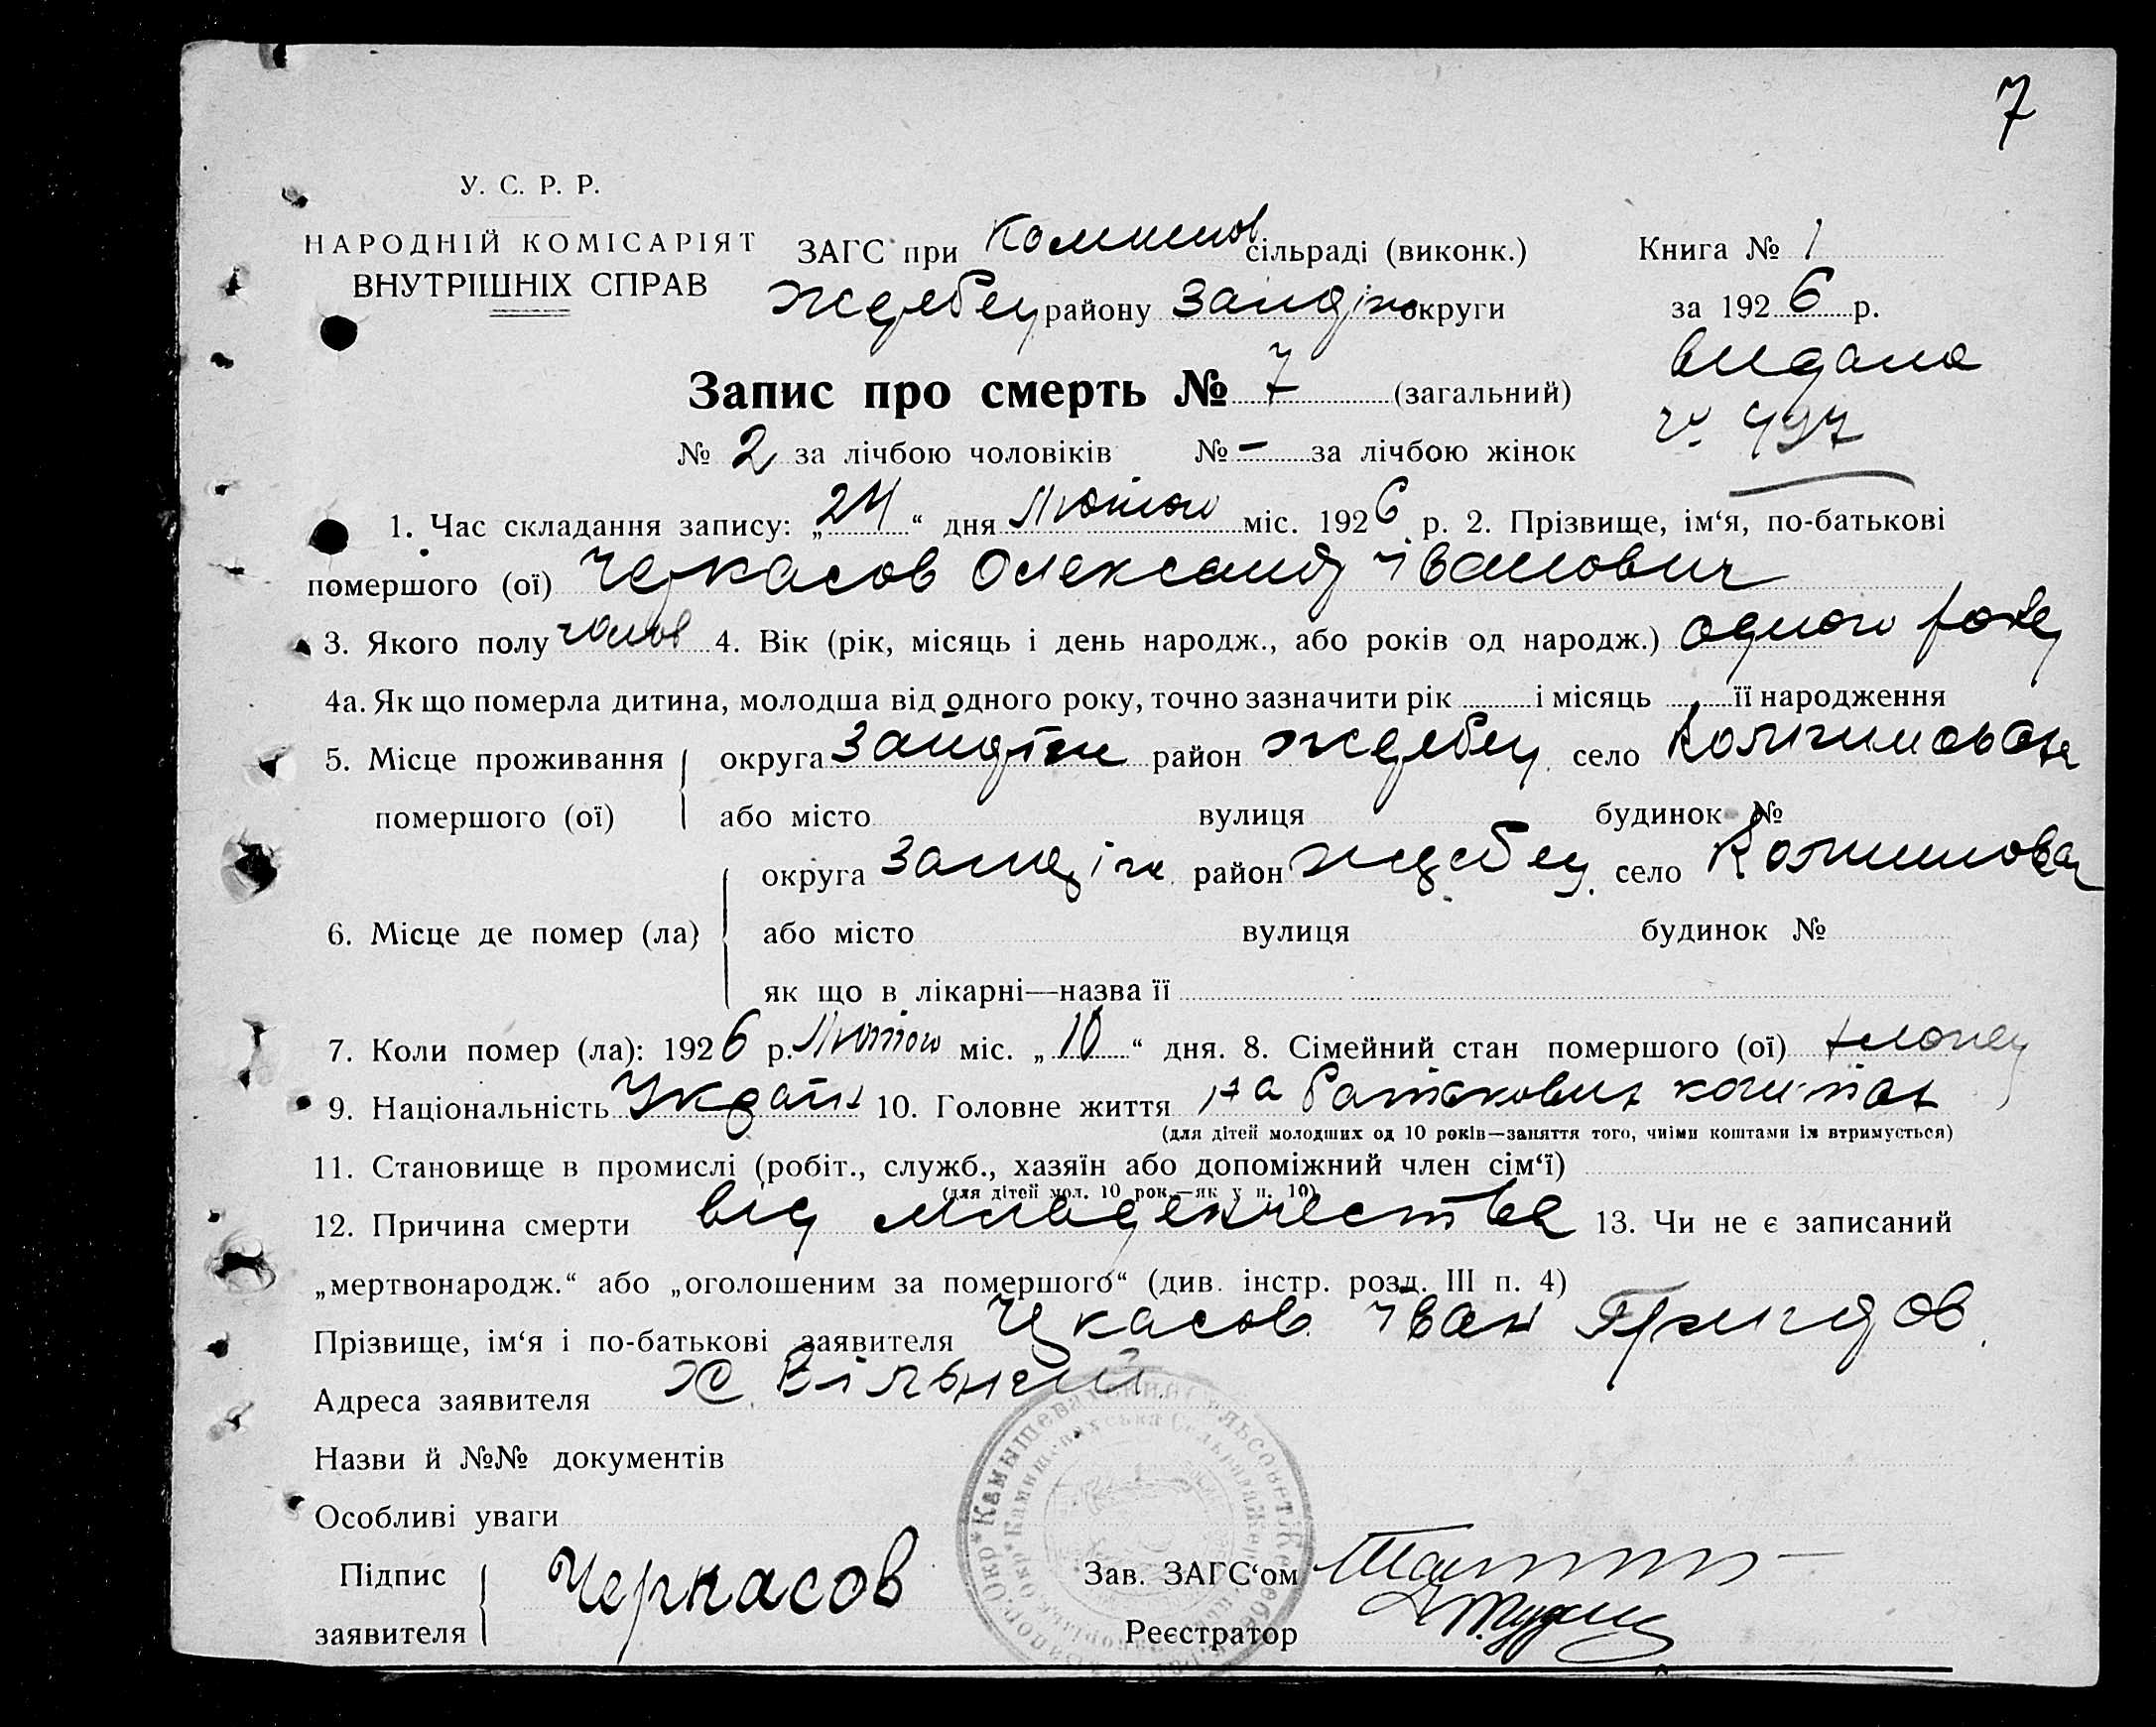 7
У. С. Р. Р.
НАРОДНІЙ КОМІСАРІЯТ
ВНУТРІШНІХ СПРАВ
ЗАГС при Комишов сільраді (виконк.)
Жеребец району Запоріж округи
Книга № 1
за 1926 р.
видана
497
Запис про смерть № 7 (загальний)
№ 2 за лічбою чоловіків № – за лічбою жінок
1. Час складання запису: „24“ дня Лютого міс. 1926 р. 2. Прізвище, ім‘я, по-батькові
помершого (ої) Черкасов Олександ Іванович
3. Якого полу чолов 4. Вік (рік, місяць і день народж., або років од народж.) одного року
4а. Як що померла дитина, молодша від одного року, точно зазначити рік і місяць її народження
5. Місце проживання помершого (ої) округа Запоріж район Жеребец село Комишоваха
або місто вулиця будинок №
6. Місце де помер (ла) округа Запоріж район Жеребец село Комишоваха
або місто вулиця будинок №
як що в лікарні—назва її
7. Коли помер (ла): 1926 р. Лютого міс. „10“ дня. 8. Сімейний стан помершого (ої)
9. Національність Україн 10. Головне життя на батькових коштах
(для дітей молодших од 10 років—заняття того, чиїми коштами їх втримується)
11. Становище в промислі (робіт., служб., хазяїн або допоміжний член сім‘ї)
(для дітей мол. 10 рок.—як у п. 10)
12. Причина смерти від младенчества 13. Чи не є записаний
„мертвонародж.“ або „оголошеним за помершого“ (див. інстр. розд. III п. 4)
Прізвище, ім‘я і по-батькові заявителя Черкасов Іван
Адреса заявителя х. Вільний
Назви й №№ документів
Особливі уваги
Підпис заявителя Черкасов
Зав. ЗАГС‘ом
Реєстратор